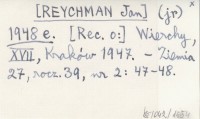 [REYCHMAN Jan] (jr) x
1948 e. [Rec. o:] Wierchy,
XVII, Kraków 1947. - Ziemia
27, rocz. 39, nr 2: 47-48.